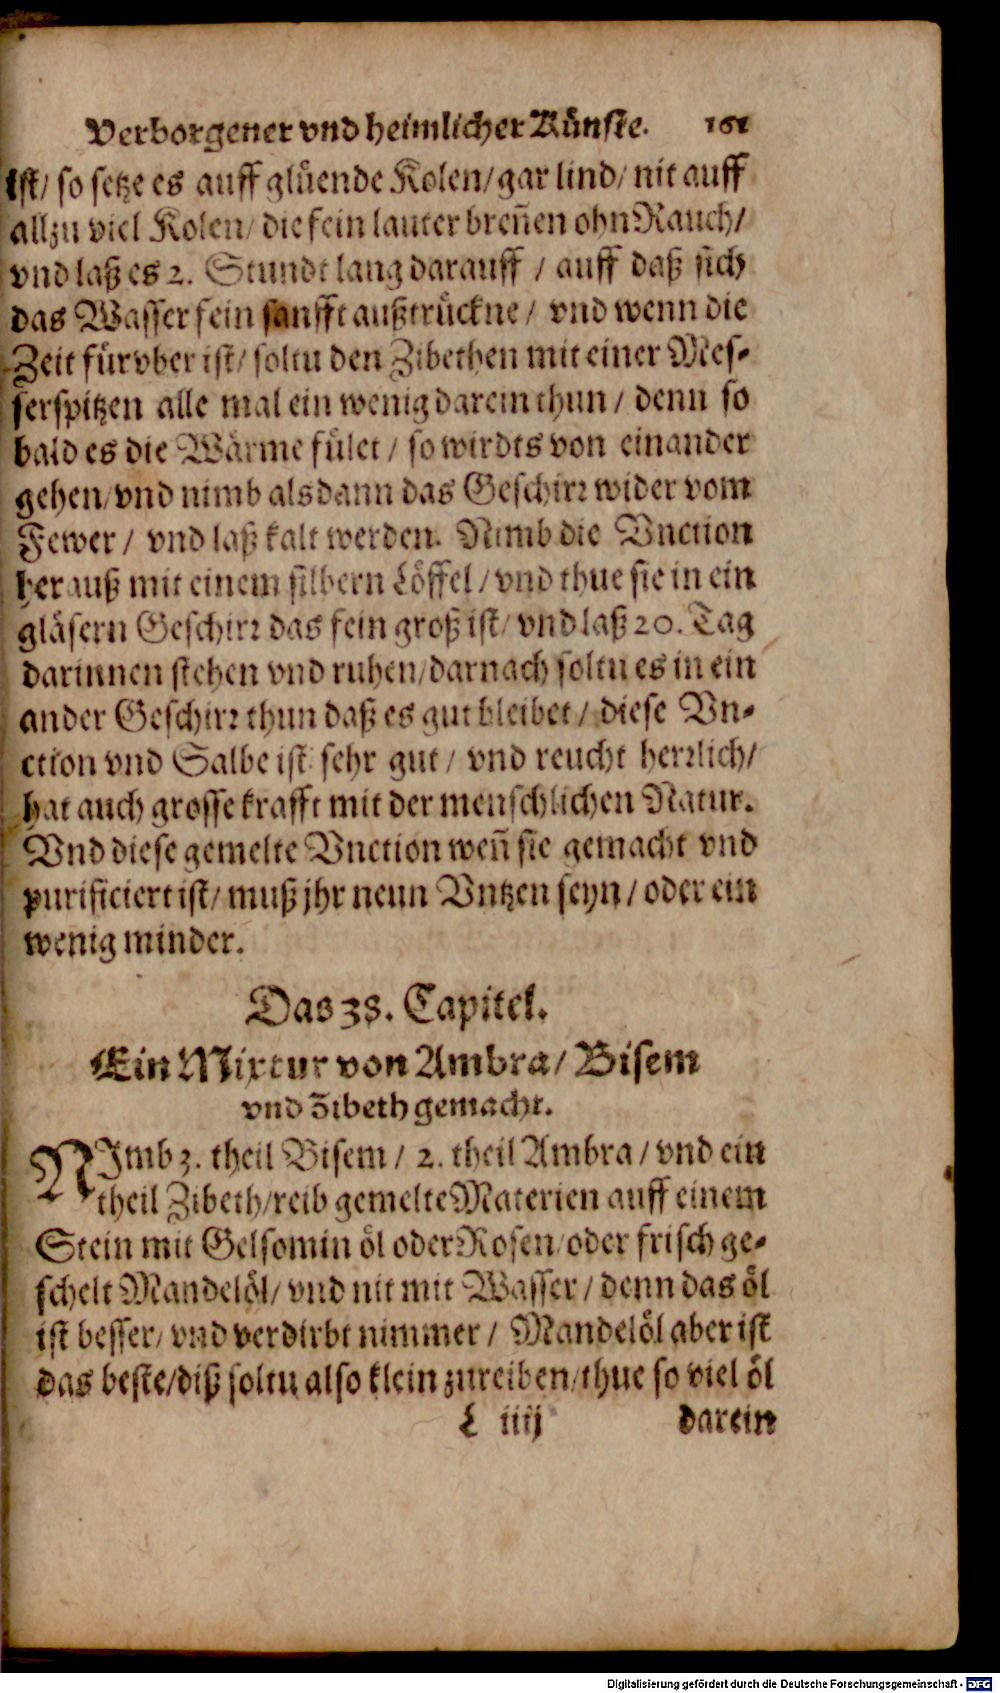 Verborgener vnd heimlicher Künste. 161
ist/ so setze es auff glüende Kolen/ gar lind/ nit auff
allzu viel Kolen/ die fein lauter breñen ohn Rauch/
vnd laß es 2. Stundt lang darauff / auff daß sich
das Wasser fein sanfft außtrückne / vnd wenn die
Zeit fürvber ist/ soltu den Zibethen mit einer Mes-
serspitzen alle mal ein wenig darein thun / denn so
bald es die Wärme fület / so wirdts von einander
gehen/ vnd nimb alsdann das Geschirr wider vom
Fewer / vnd laß kalt werden. Nimb die Vnction
herauß mit einem silbern Löffel / vnd thue sie in ein
gläsern Geschirr das fein groß ist/ vnd laß 20. Tag
darinnen stehen vnd ruhen/ darnach soltu es in ein
ander Geschirr thun daß es gut bleibet / diese Vn-
ction vnd Salbe ist sehr gut / vnd reucht herrlich/
hat auch grosse krafft mit der menschlichen Natur.
Vnd diese gemelte Vnction weñ sie gemacht vnd
purificiert ist/ muß jhr neun Vntzen seyn / oder ein
wenig minder.
Das 38. Capitel.
Ein Mixtur von Ambra/ Bisem
vnd Zibeth gemacht.
NImb 3. theil Bisem / 2. theil Ambra / vnd ein
theil Zibeth/ reib gemelte Materien auff einem
Stein mit Gelsomin öl oder Rosen/ oder frisch ge-
schelt Mandelöl/ vnd nit mit Wasser / denn das öl
ist besser/ vnd verdirbt nimmer / Mandelöl aber ist
das beste/ diß soltu also klein zureiben/ thue so viel öl
L iiij darein
Digitalisierung gefördert durch die Deutsche Forschungsgemeinschaft - DFG